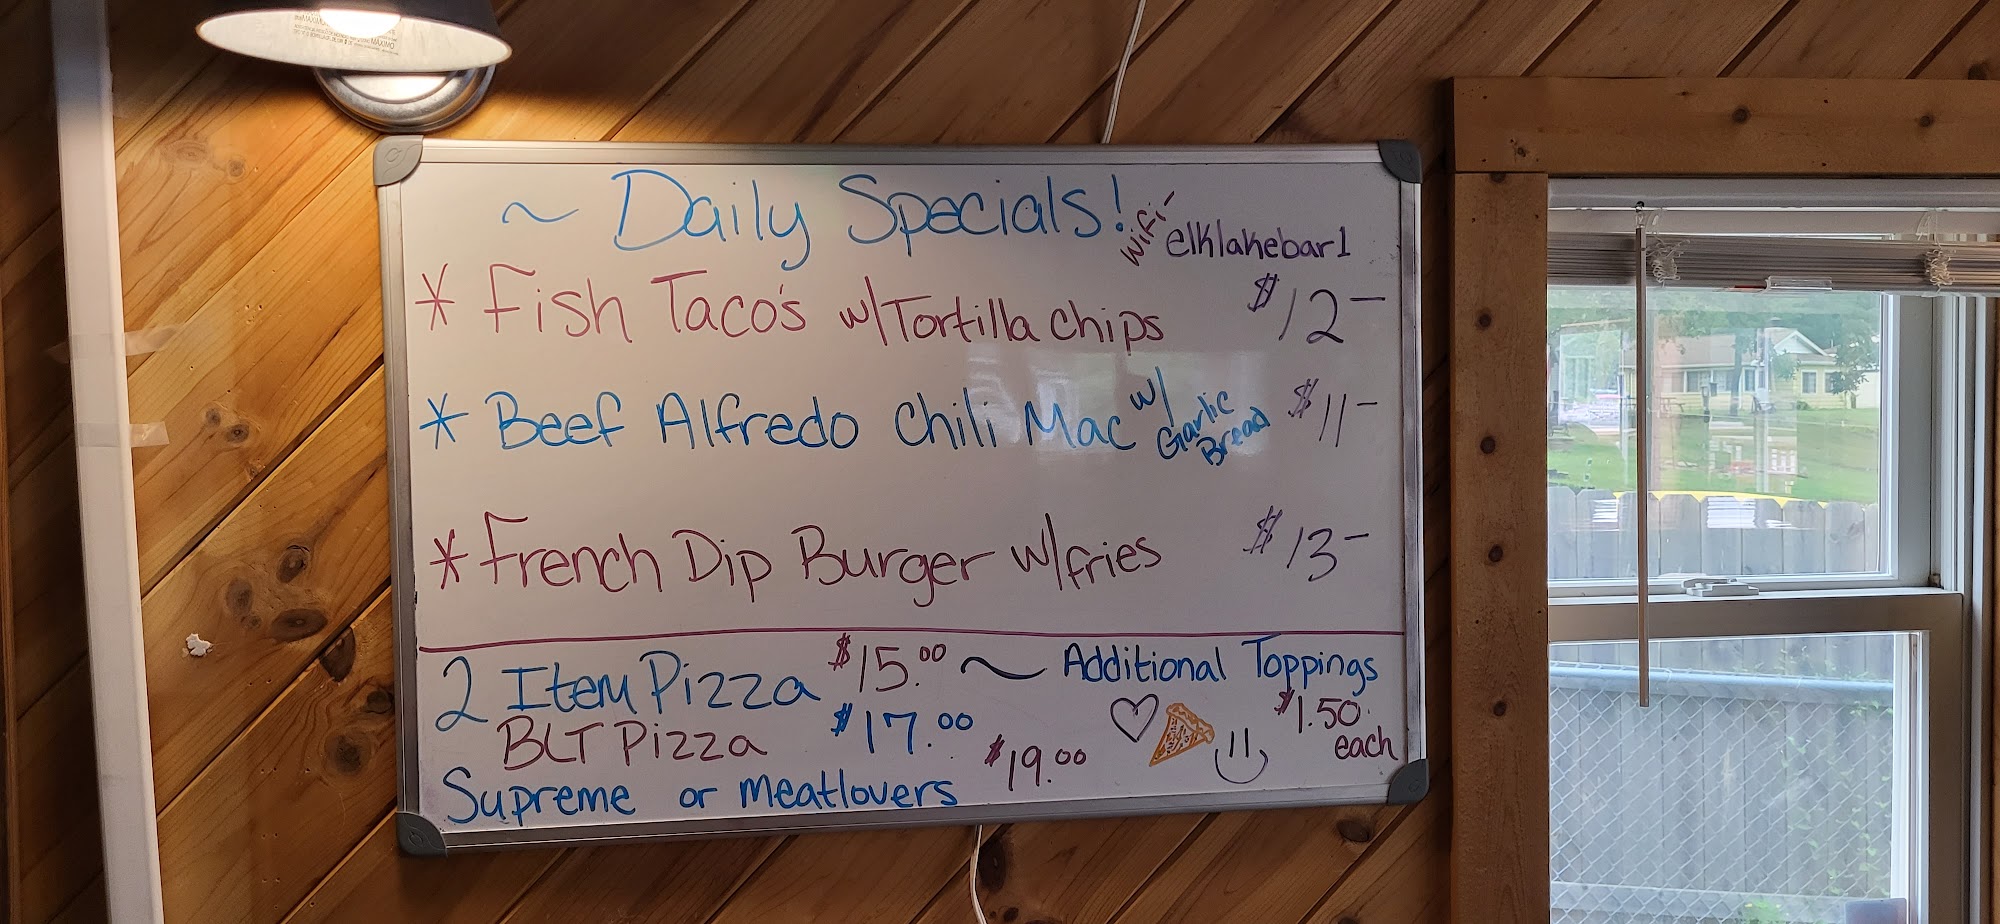 ~ Daily Specials!
WiFi- elklakebar1
* Fish Taco's w/Tortilla chips $12-
* Beef Alfredo Chili Mac w/ Garlic Bread $11-
* French Dip Burger w/fries $13-
2 Item Pizza $15.00 ~ Additional Toppings
$1.50 each
BLT Pizza $17.00
Supreme or meatlovers $19.00